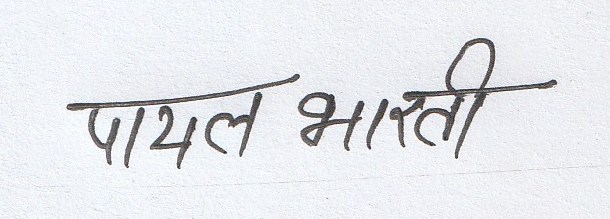 पायल भारती